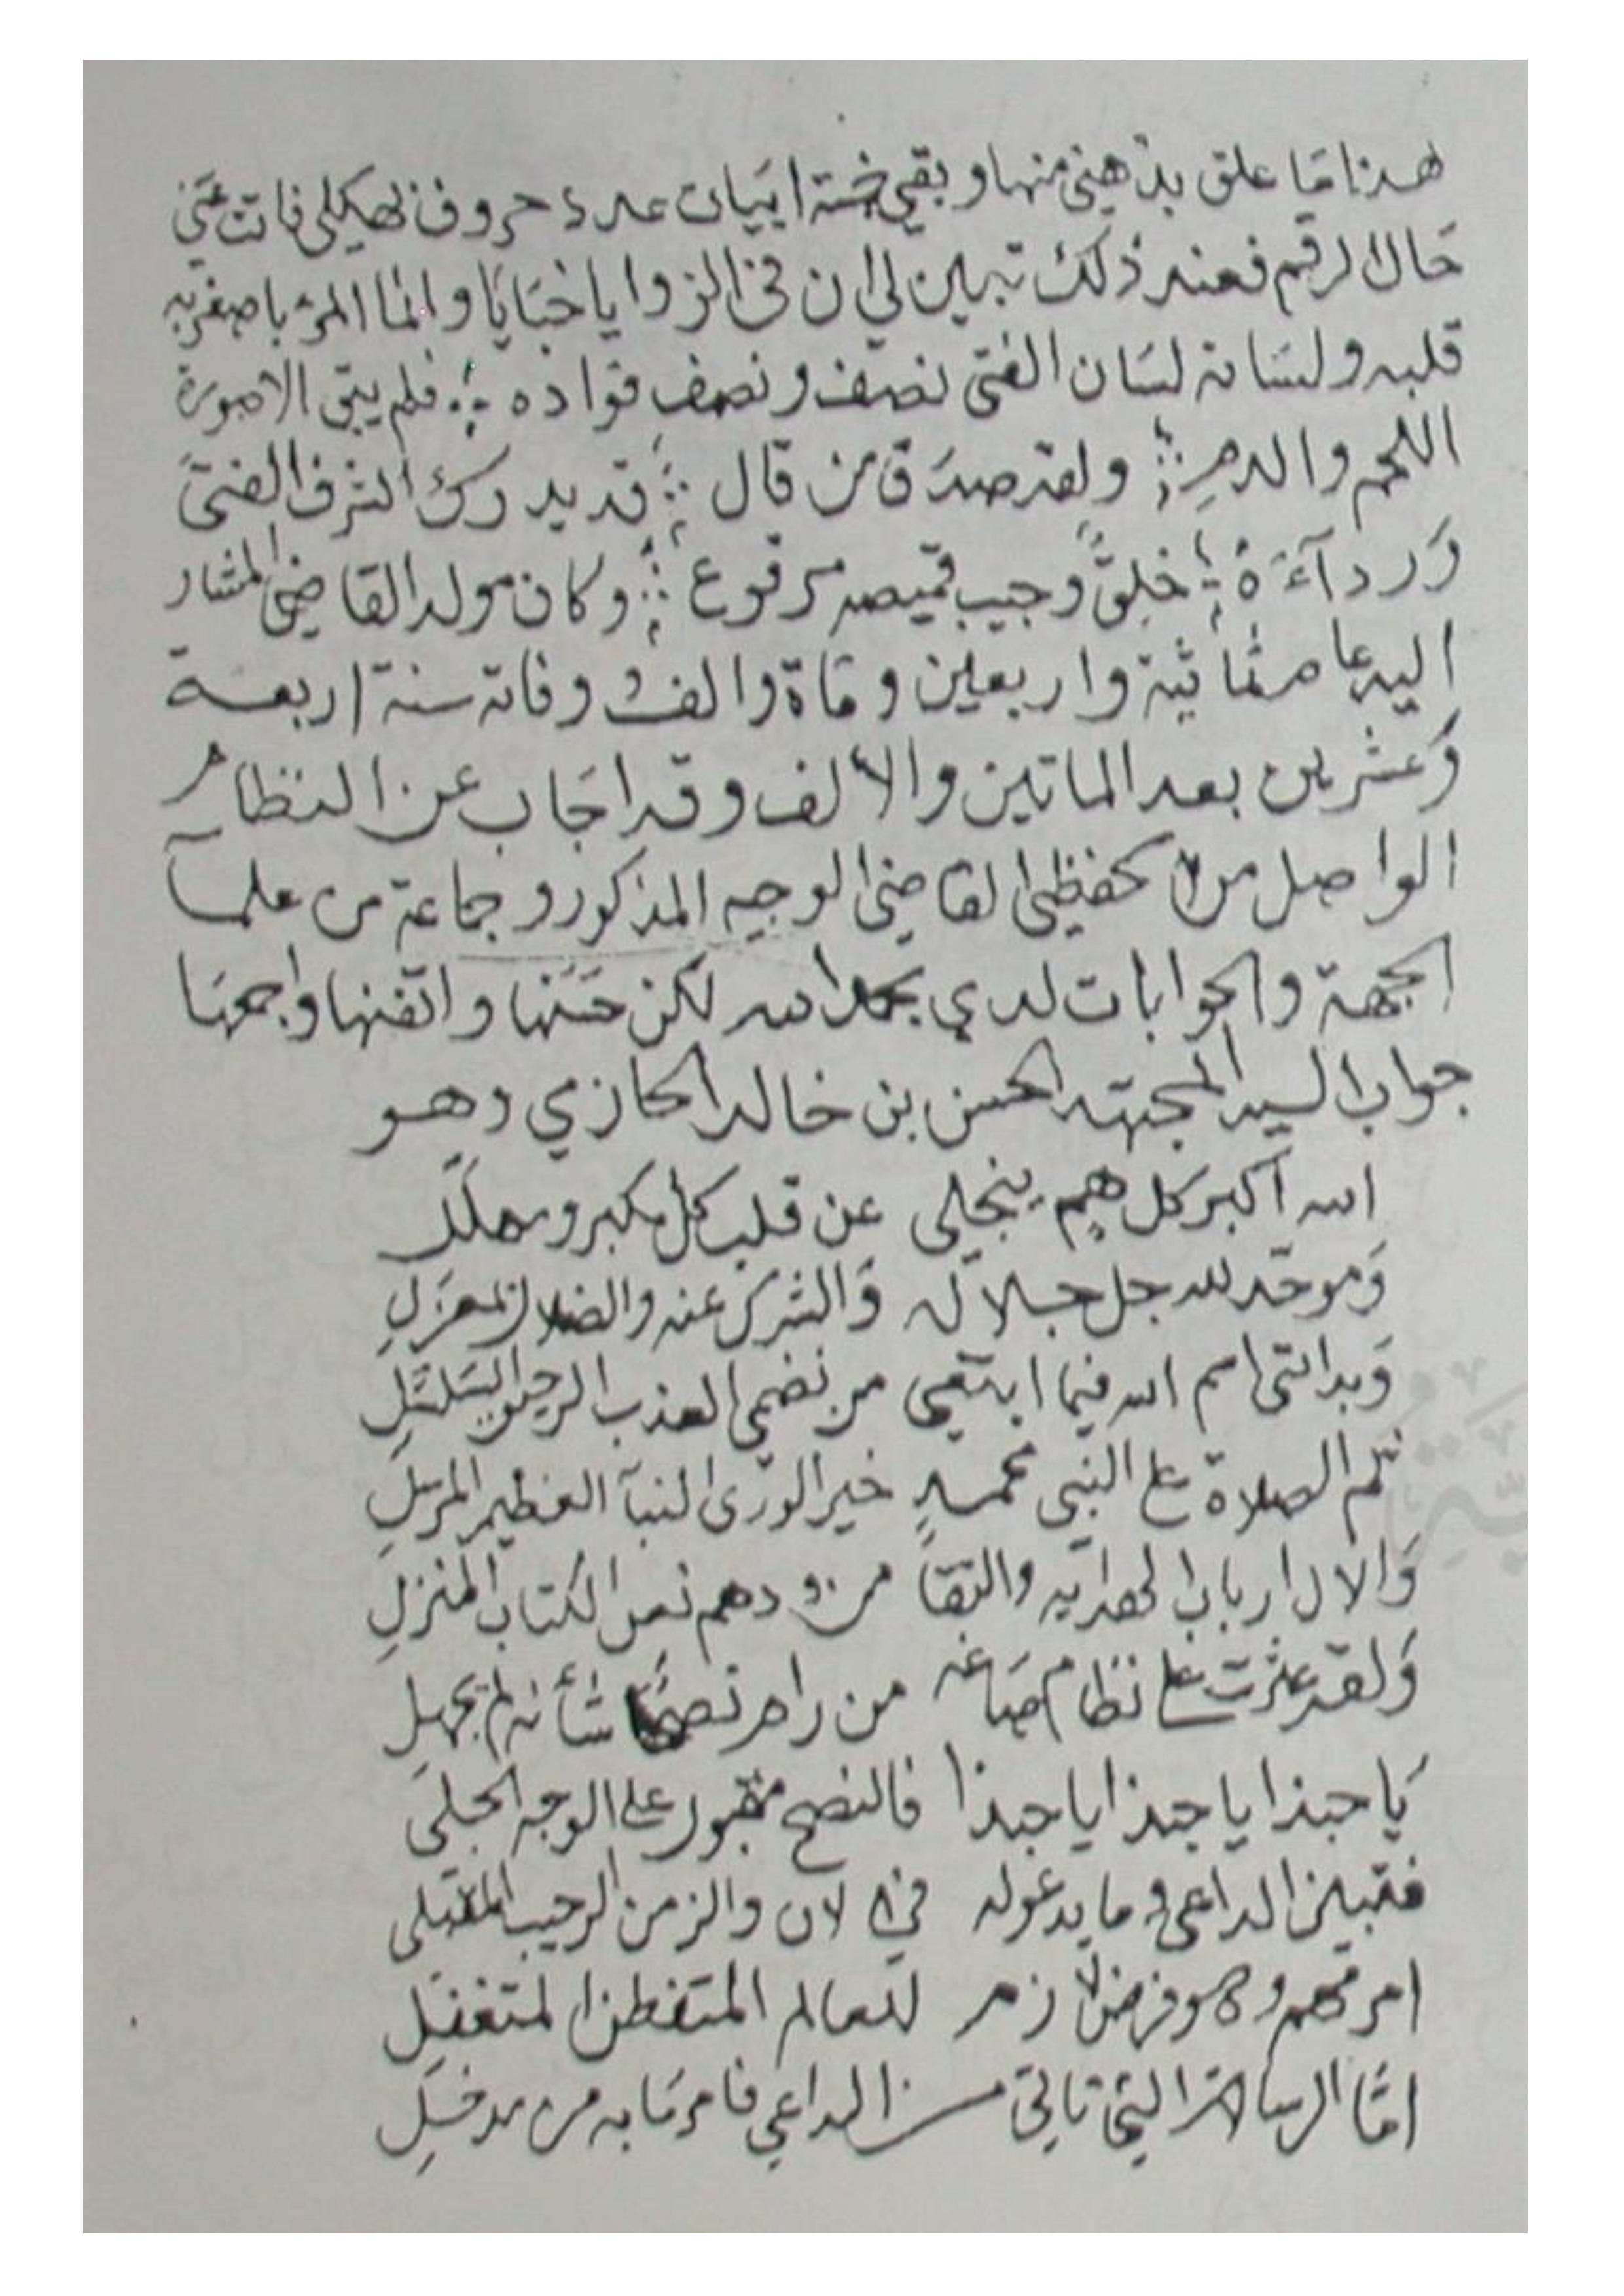 هذا ما علق بذهني منها وبقي خمسة ابيات عدد حروف هيكلي فات عني
حال الرقم فعند ذلك تبين لي ان في الزوايا خبايا وانما المرء باصغريه
قلبه ولسانه لسان الفتى نصف ونصف فواده ؛ فلم يبق الا صورة
اللحم والدمِ ؛ ولقد صدَق من قال ؛ قد يدرك الشرف الفتىَ
وَرداءَهُ ؛ خلِقٌ وجيب قميصه مرقوع ؛ وكان مولد القاضي المشار
اليه عام ثمانية واربعين وماة والف ووفاته سنة اربعة
وَعشرين بعد الماتين والألف وقد اجَاب عن النظام
الواصل من الحفظي القاضي الوجيه المذكور وجماعة من علمآ
الجهة والجوابات لدي بحمد الله لكن حسَنها واتقنها واجمعهَا
جواب السيد المجتهد الحسن بن خالد الحازمي وهو
الله اكبر كل هم ينجلي عن قلب كل مكبر ومهلّل
وَموحّد لله جل جلاله وَالشرك عنه والضلال بمعزلِ
وَبدائتي اسم الله فيما ابتغي من نضمي العذب الرحيق السَلسَلِ
ثم الصلاة على النبي محمدٍ خير الورىَ النبآ العظيم المرسلِ
وَالال ارباب الهدايه والتقا من ودهم نص الكتاب المنزلِ
وَلقد عثرت على نظام صَاغه من رام نصحًا شأنه لم يجهلِ
يَا حبذا يا حبذا يا حبذا فالنصح مقبول على الوجه الجلي
فتبين الداعي وما يدعو له في الان والزمن الرحيب المقبلي
امر مهم وهو فرض لازم للعالم المتفطن المتغفلِ
امّا الرسالة التي تاتي من الداعي فامرنا به من مدخلِ